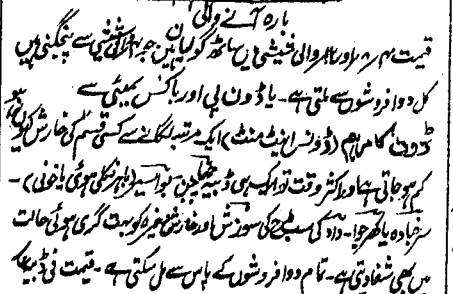 بارہ آنے والی
قیمت ۸؍ اور ۱۲؍ والی شیشی میں ساٹھ گولیاں ہیں جو اس شیشی سے پنجگنی ہیں
کل دوا فروشوں سے ملتی ہے۔ یا ڈون پی او ر باکس بمبئی سے
ڈون کا مرہم (ڈونس اینٹ منٹ) ایک مرتبہ لگانے سے کسی قسم کی خارش کیوں نہو
کم ہو جاتی ہے اور اکثر وقت تو ایک ہی ڈبیہ بواسیر (باہر نکلی ہوئی یا خونی)۔
سرخبادہ یا داد کی سب طرح کی سوزش اور خارش وغیرہ کو بہت گری ہوئی حالت
میں بھی شفا دیتی ہے۔ تمام دوا فروشوں کے پاس سے مل سکتی ہے۔ قیمت فی ڈبیہ